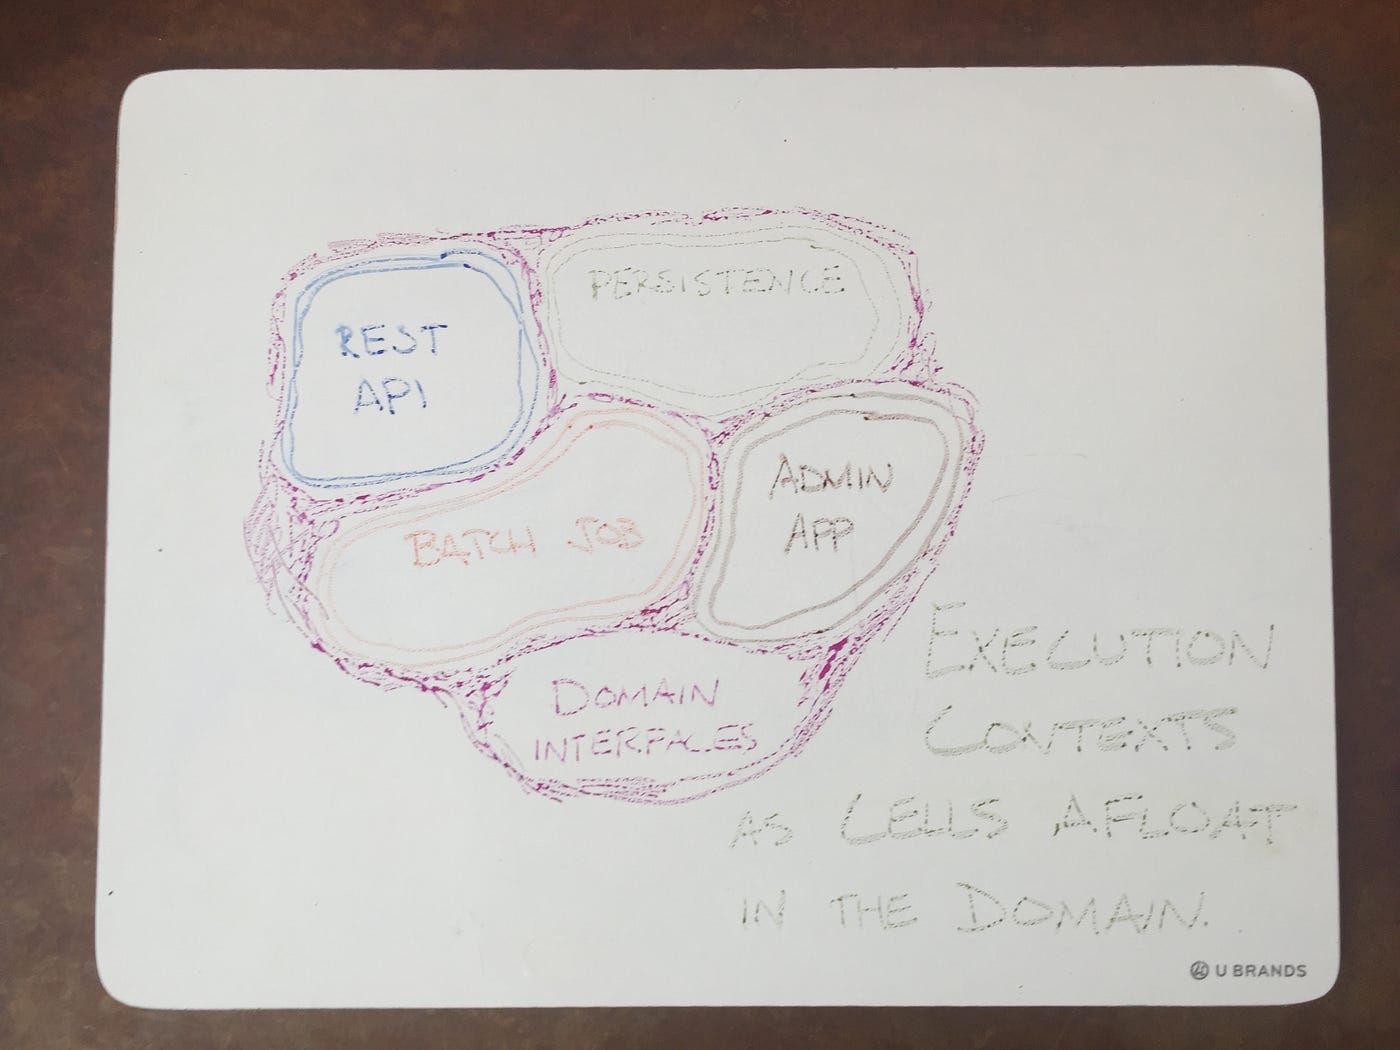 REST
API
PERSISTENCE
BATCH JOB
ADMIN
APP
DOMAIN
INTERFACES
EXECUTION
CONTEXTS
AS CELLS AFLOAT
IN THE DOMAIN.
U BRANDS